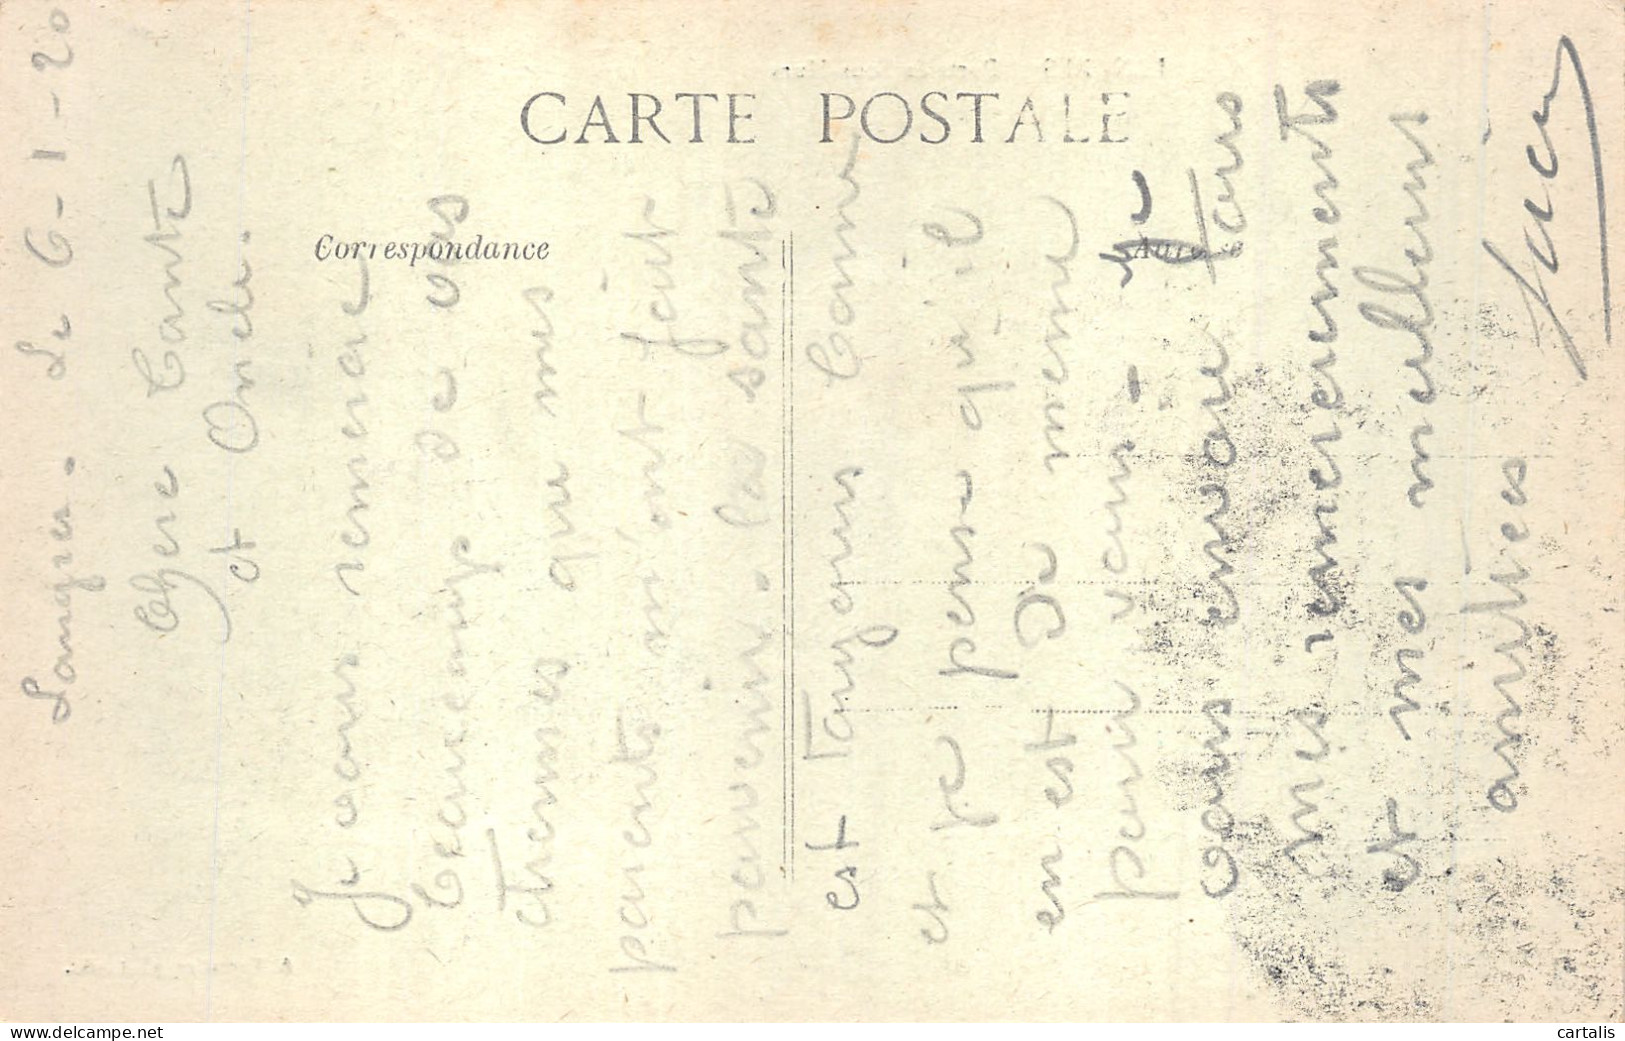 CARTE POSTALE
Correspondance
Langres. Le 6-1-20
Chere Tante
et Oncle.
Je vous remercie
beaucoup de vos
etrennes que mes
parents m'ont fait
parvenir. La santé
est toujours bonne
et je pense qu'il
en est de meme
pour vous - Je
vous envoie tous
mes remerciements
et mes meilleurs
amitiés
www.delcampe.net
cartalis